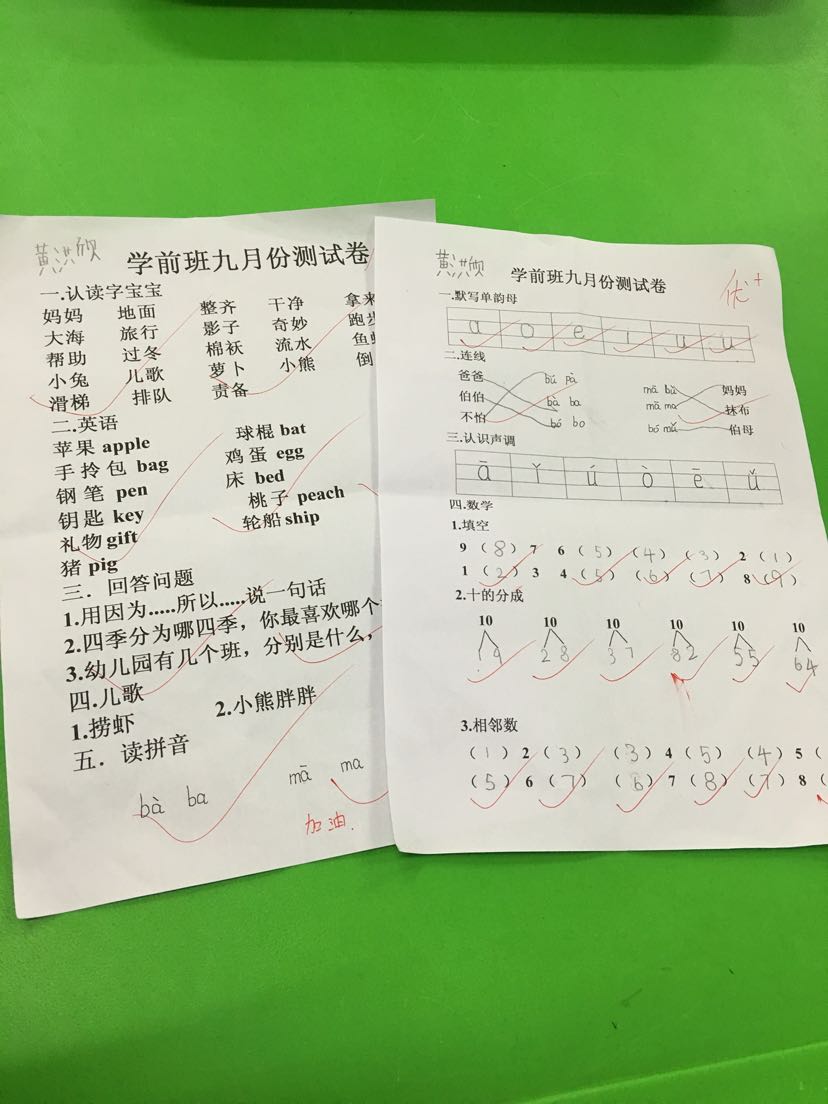 黄洪欣
学前班九月份测试卷
一.认读字宝宝
妈妈 地面 整齐 干净 拿来
大海 旅行 影子 奇妙 跑步
帮助 过冬 棉袄 流水 鱼
小兔 儿歌 萝卜 小熊 倒
滑梯 排队 责备
二.英语
苹果 apple 球棍 bat
手拎包 bag 鸡蛋 egg
钢笔 pen 床 bed
钥匙 key 桃子 peach
礼物 gift 轮船 ship
猪 pig
三.回答问题
1.用因为.....所以.....说一句话
2.四季分为哪四季，你最喜欢哪个
3.幼儿园有几个班，分别是什么，
四.儿歌
1.捞虾 2.小熊胖胖
五.读拼音
bà ba mā ma
加油.
黄洪欣
学前班九月份测试卷
优+
一.默写单韵母
a o e i u ü
二.连线
爸爸 bú pà mā bù 妈妈
伯伯 bà ba mā ma 抹布
不怕 bó bo bó mǔ 伯母
三.认识声调
ā ǐ ú ò ē ǚ
四.数学
1.填空
9 (8) 7 6 (5) (4) (3) 2 (1)
1 (2) 3 4 (5) (6) (7) 8 (9)
2.十的分成
10 10 10 10 10 10
1 9 2 8 3 7 8 2 5 5 6 4
3.相邻数
(1) 2 (3) (3) 4 (5) (4) 5 (
(5) 6 (7) (6) 7 (8) (7) 8 (